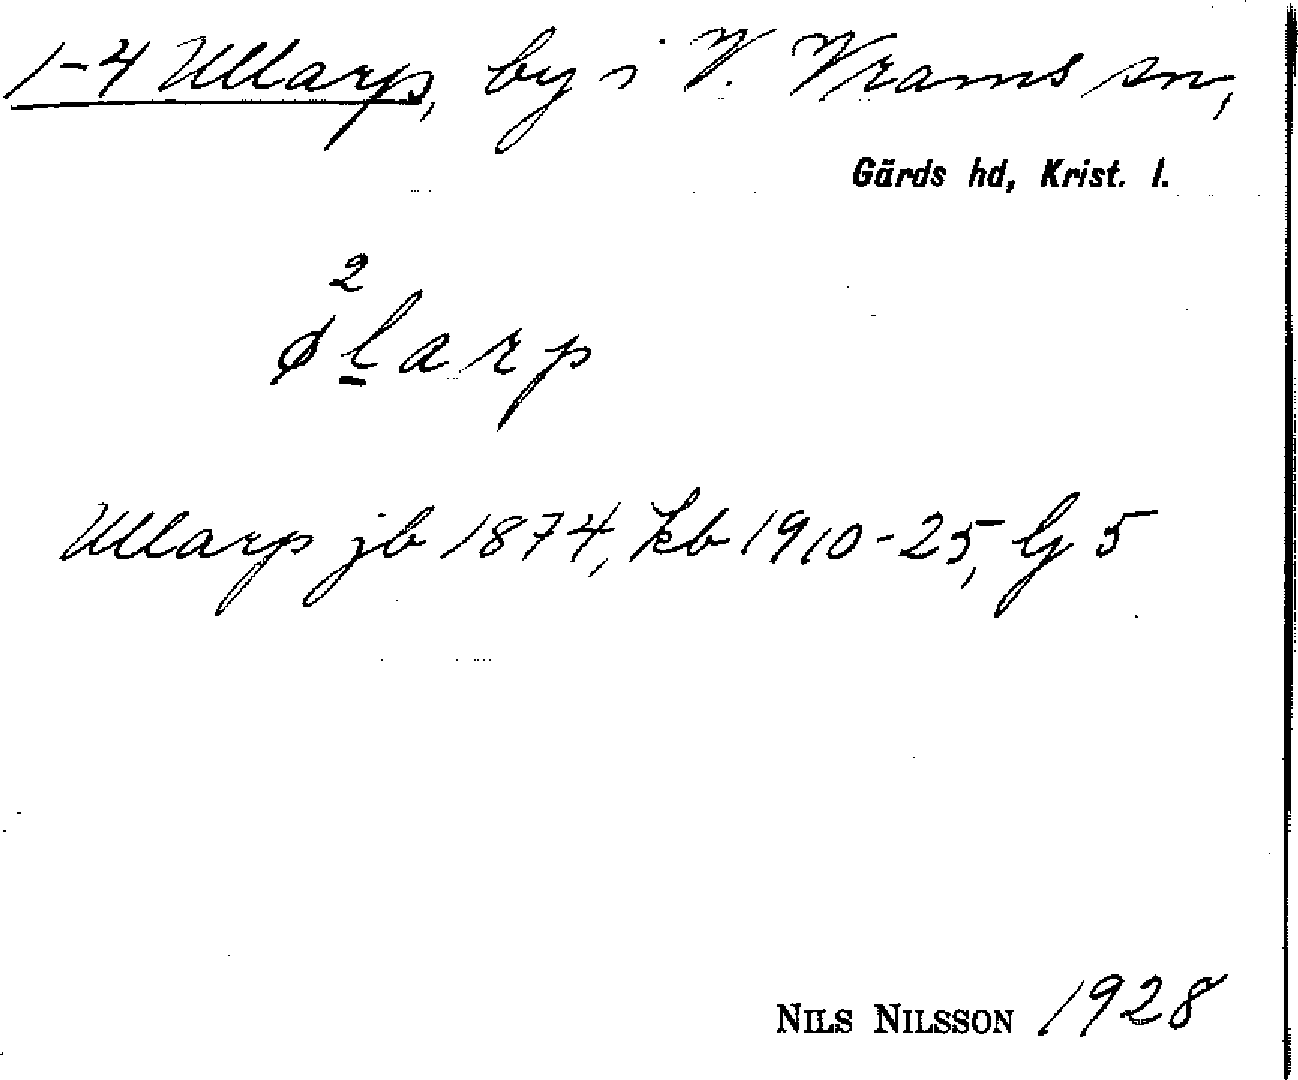 1-4 Ullarp, by i V. Vrams sn,
Gärds hd, Krist. l.
2
ølarp
Ullarp jb 1874, kb 1910-25, G 5
NILS NILSSON 1928